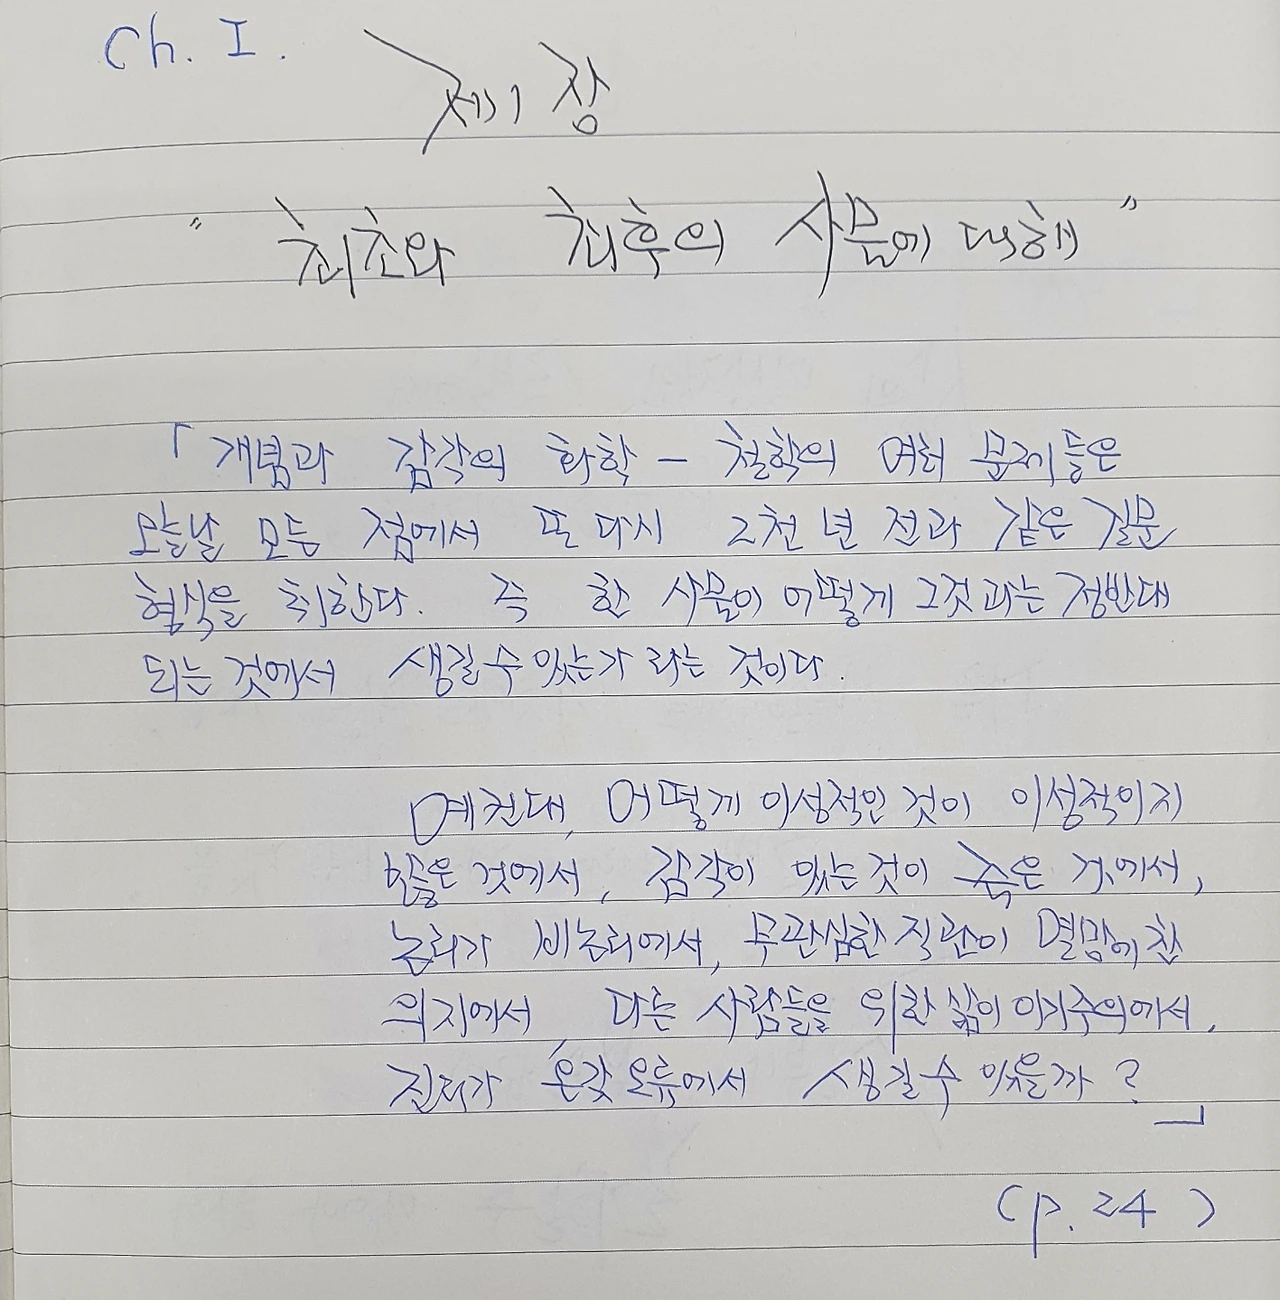 Ch. I.
제1장
" 최초와 최후의 사물에 대해 "
「개념과 감각의 화학 - 철학의 여러 문제들은
오늘날 모든 점에서 또 다시 2천 년 전과 같은 질문
형식을 취한다. 즉 한 사물이 어떻게 그것과는 정반대
되는 것에서 생길 수 있는가 라는 것이다.
예컨대, 어떻게 이성적인 것이 이성적이지
않은 것에서, 감각이 있는 것이 죽은 것에서,
논리가 비논리에서, 무관심한 직관이 열망에 찬
의지에서 다른 사람들을 위한 삶이 이기주의에서,
진리가 온갖 오류에서 생길 수 있을까?」
(p. 24)